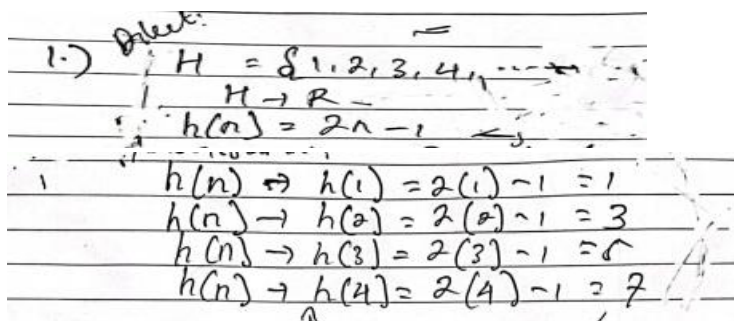 Direct:
1.) H = {1, 2, 3, 4, ----
H → R
h(n) = 2n - 1
h(n) → h(1) = 2(1) - 1 = 1
h(n) → h(2) = 2(2) - 1 = 3
h(n) → h(3) = 2(3) - 1 = 5
h(n) → h(4) = 2(4) - 1 = 7